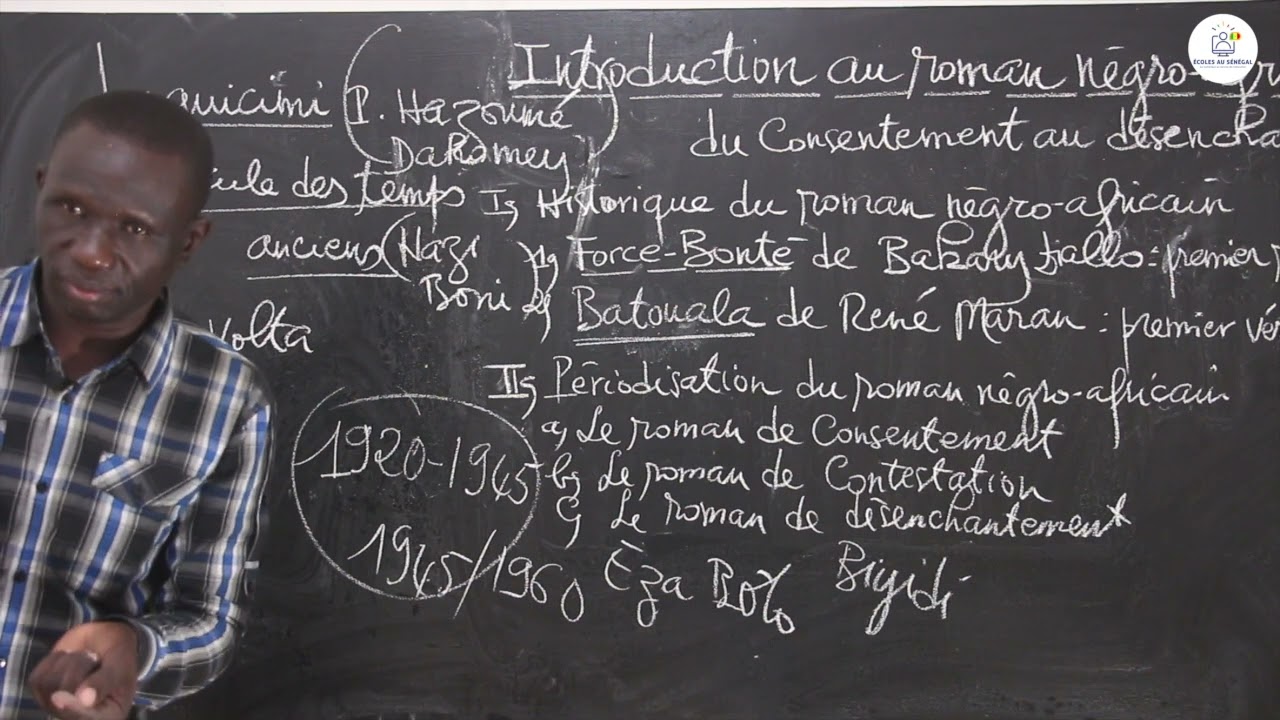 Introduction au roman négro-afr
du Consentement au désencha
I, Historique du roman négro-africain
1, Force-Bonté de Bakary Diallo : premier
2, Batouala de René Maran : premier vér
II, Périodisation du roman négro-africain
a, Le roman de Consentement
b, Le roman de Contestation
c, Le roman de désenchantement
Eza Boto Bigidi
guicimi (P. Hazoumé
Dahomey)
cule des temps
anciens (Nazi
Boni
Volta
1920-1945
1945/1960
ÉCOLES AU SÉNÉGAL